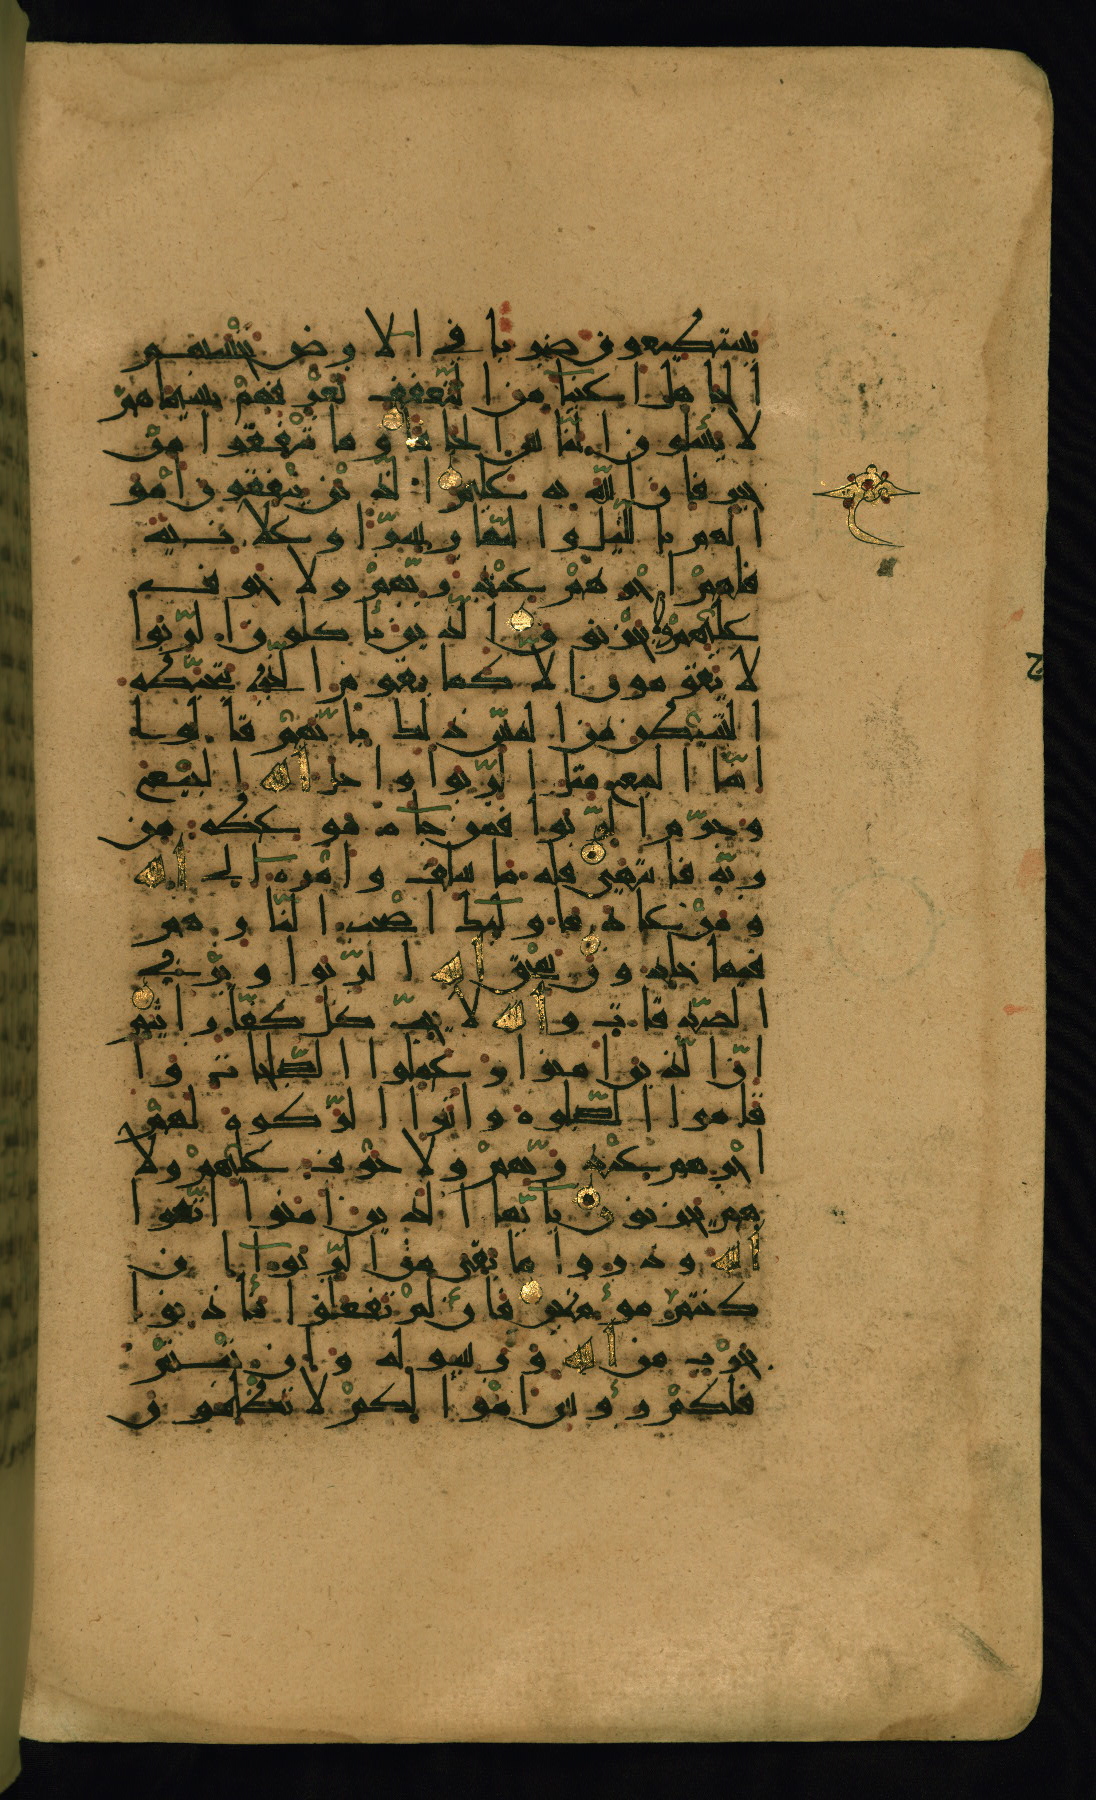 يستطيعون ضربا في الارض يحسبهم
الجاهل اغنيا من التعفف تعرفهم بسيماهم
لا يسئلون الناس الحافا وما تنفقوا من
خير فان الله به عليم الذين ينفقون امو
الهم باليل والنهار سرا وعلانية
فلهم اجرهم عند ربهم ولا خوف
عليهم ولا هم يحزنون الذين يأكلون الربوا
لا يقومون الا كما يقوم الذي يتخبطه
الشيطن من المس ذلك بانهم قالوا
انما البيع مثل الربوا واحل الله البيع
وحرم الربوا فمن جاه موعظة من
ربه فانتهى فله ما سلف وامره الى الله
ومن عاد فاولئك اصحب النار هم
فيها خلدون يمحق الله الربوا ويربي
الصدقات والله لا يحب كل كفار اثيم
ان الذين امنوا وعملوا الصلحات وا
قاموا الصلوة واتوا الزكوة لهم
اجرهم عند ربهم ولا خوف عليهم ولا
هم يحزنون يايها الذين امنوا اتقوا
الله وذروا ما بقي من الربوا ان
كنتم مؤمنين فان لم تفعلوا فأذنوا
بحرب من الله ورسوله وان تبتم
فلكم رؤس اموالكم لا تظلمون